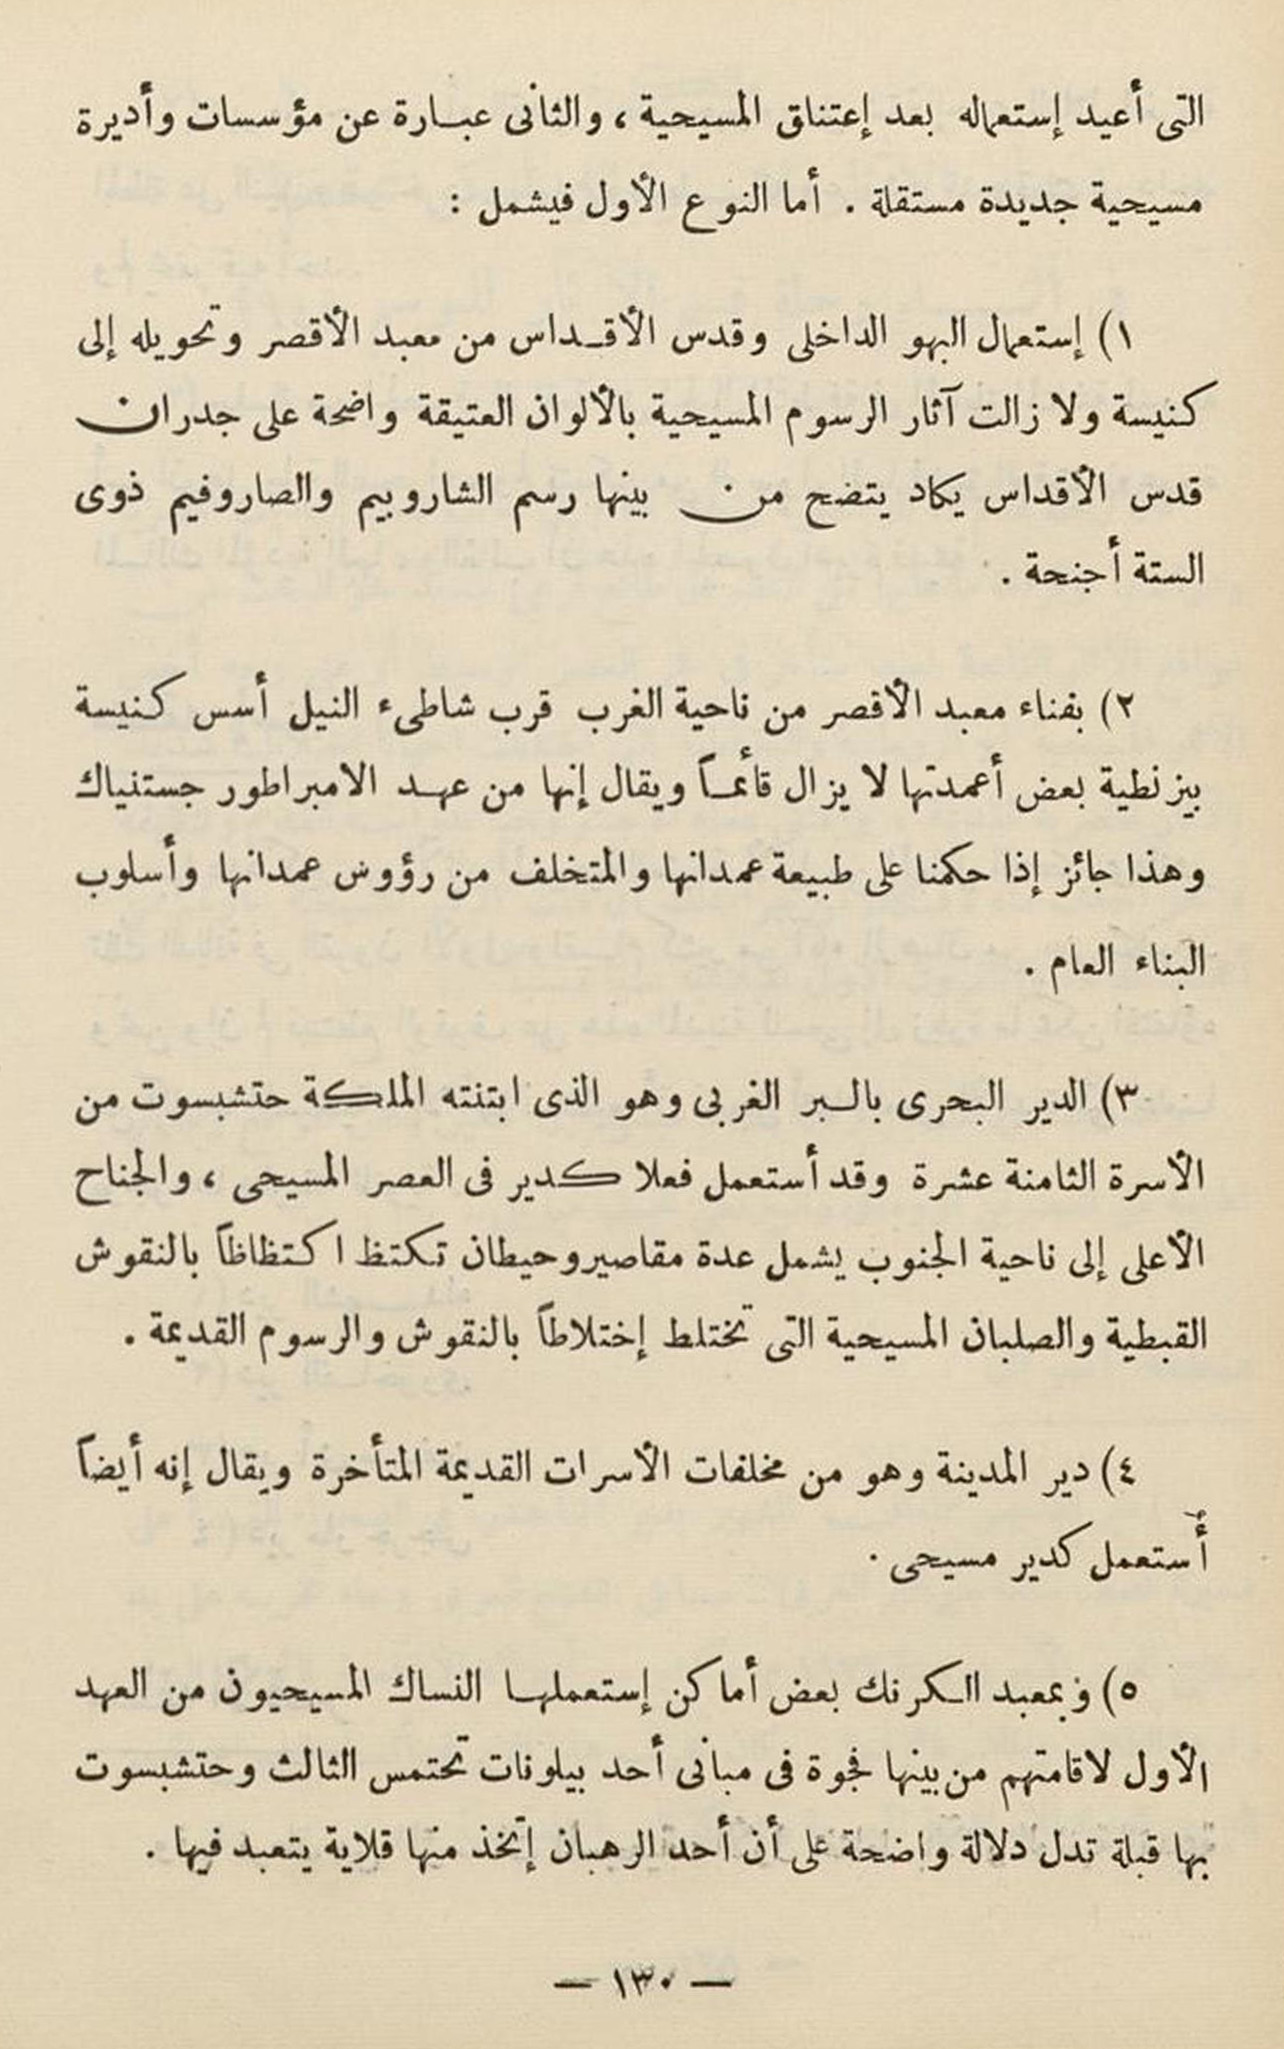 التى أعيد إستعماله بعد إعتناق المسيحية ، والثانى عبارة عن مؤسسات وأديرة
مسيحية جديدة مستقلة . أما النوع الأول فيشمل :
١) إستعمال البهو الداخلى وقدس الأقداس من معبد الأقصر وتحويله إلى
كنيسة ولا زالت آثار الرسوم المسيحية بالألوان العتيقة واضحة على جدران
قدس الأقداس يكاد يتضح من بينها رسم الشاروبيم والصاروفيم ذوى
الستة أجنحة .
٢) بفناء معبد الأقصر من ناحية الغرب قرب شاطىء النيل أسس كنيسة
بيزنطية بعض أعمدتها لا يزال قائمـاً ويقال إنها من عهد الامبراطور جستنياك
وهذا جائز إذا حكمنا على طبيعة عمدانها والمتخلف من رؤوس عمدانها وأسلوب
البناء العام .
٣) الدير البحرى بالبر الغربى وهو الذى ابتنته الملكة حتشبسوت من
الأسرة الثامنة عشرة وقد أستعمل فعلا كدير فى العصر المسيحى ، والجناح
الأعلى إلى ناحية الجنوب يشمل عدة مقاصير وحيطان تكتظ اكتظاظاً بالنقوش
القبطية والصلبان المسيحية التى تختلط إختلاطاً بالنقوش والرسوم القديمة .
٤) دير المدينة وهو من مخلفات الأسرات القديمة المتأخرة ويقال إنه أيضاً
أُستعمل كدير مسيحى .
٥) وبمعبد الكرنك بعض أماكن إستعملها النساك المسيحيون من العهد
الأول لاقامتهم من بينها فجوة فى مبانى أحد بيلونات تحتمس الثالث وحتشبسوت
بها قبلة تدل دلالة واضحة على أن أحد الرهبان إتخذ منها قلاية يتعبد فيها .
— ١٣٠ —